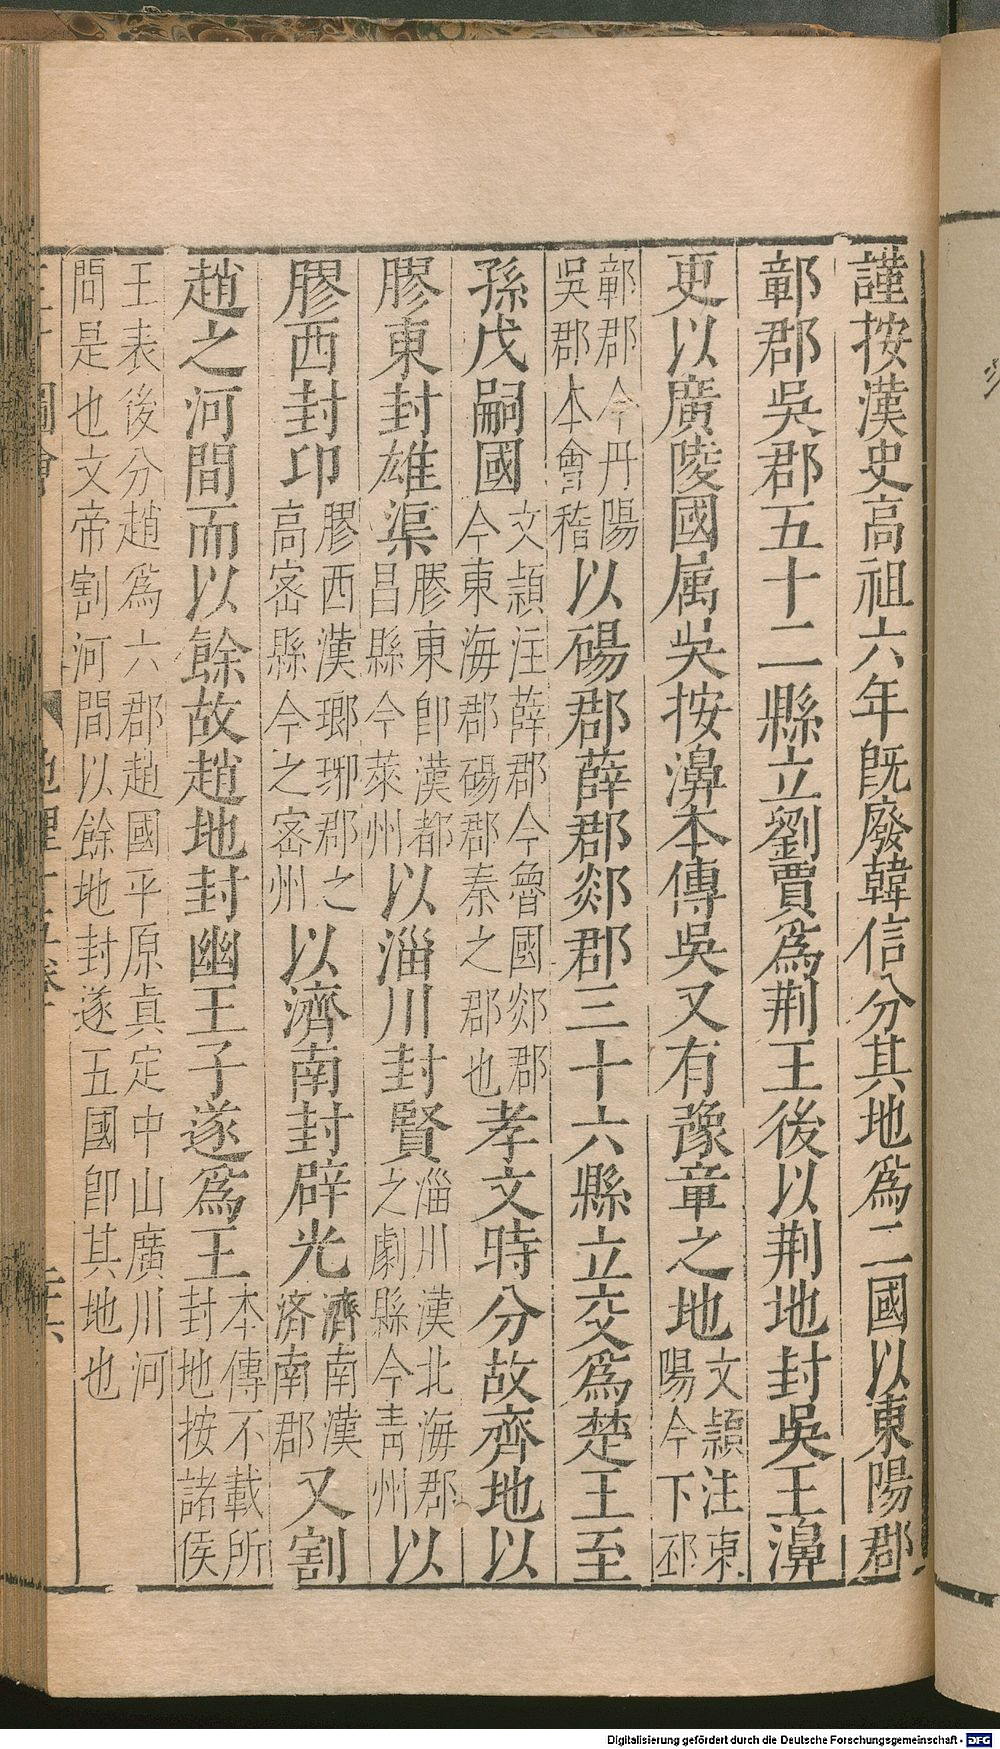 謹按漢史高祖六年既廢韓信分其地爲二國以東陽郡
鄣郡吳郡五十二縣立劉賈爲荆王後以荆地封吳王濞
更以廣陵國属吳按濞本傳吳又有豫章之地文頴注東陽今下邳
鄣郡今丹陽吳郡本會稽以碭郡薛郡郯郡三十六縣立交爲楚王至
孫戊嗣國文頴注薛郡今魯國郯郡今東海郡碭郡秦之郡也孝文時分故齊地以
膠東封雄渠膠東卽漢都昌縣今萊州以淄川封賢淄川漢北海郡之劇縣今靑州以
膠西封卭膠西漢瑯琊郡之高密縣今之密州以濟南封辟光濟南漢済南郡又割
趙之河間而以餘故趙地封幽王子遂爲王本傳不載所封地按諸侯
王表後分趙爲六郡趙國平原眞定中山廣川河
間是也文帝割河間以餘地封遂五國卽其地也
地理十五卷
Digitalisierung gefördert durch die Deutsche Forschungsgemeinschaft - DFG